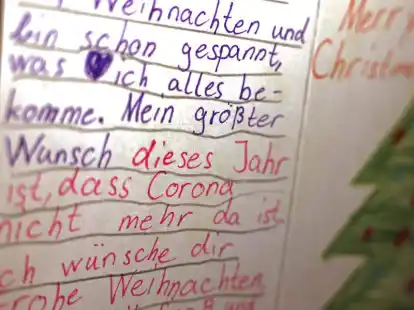 Weihnachten und
bin schon gespannt,
was ich alles be-
komme. Mein größter
Wunsch dieses Jahr
ist, dass Corona
nicht mehr da ist
ich wünsche dir
Frohe Weihnachten
Merry
Christmas